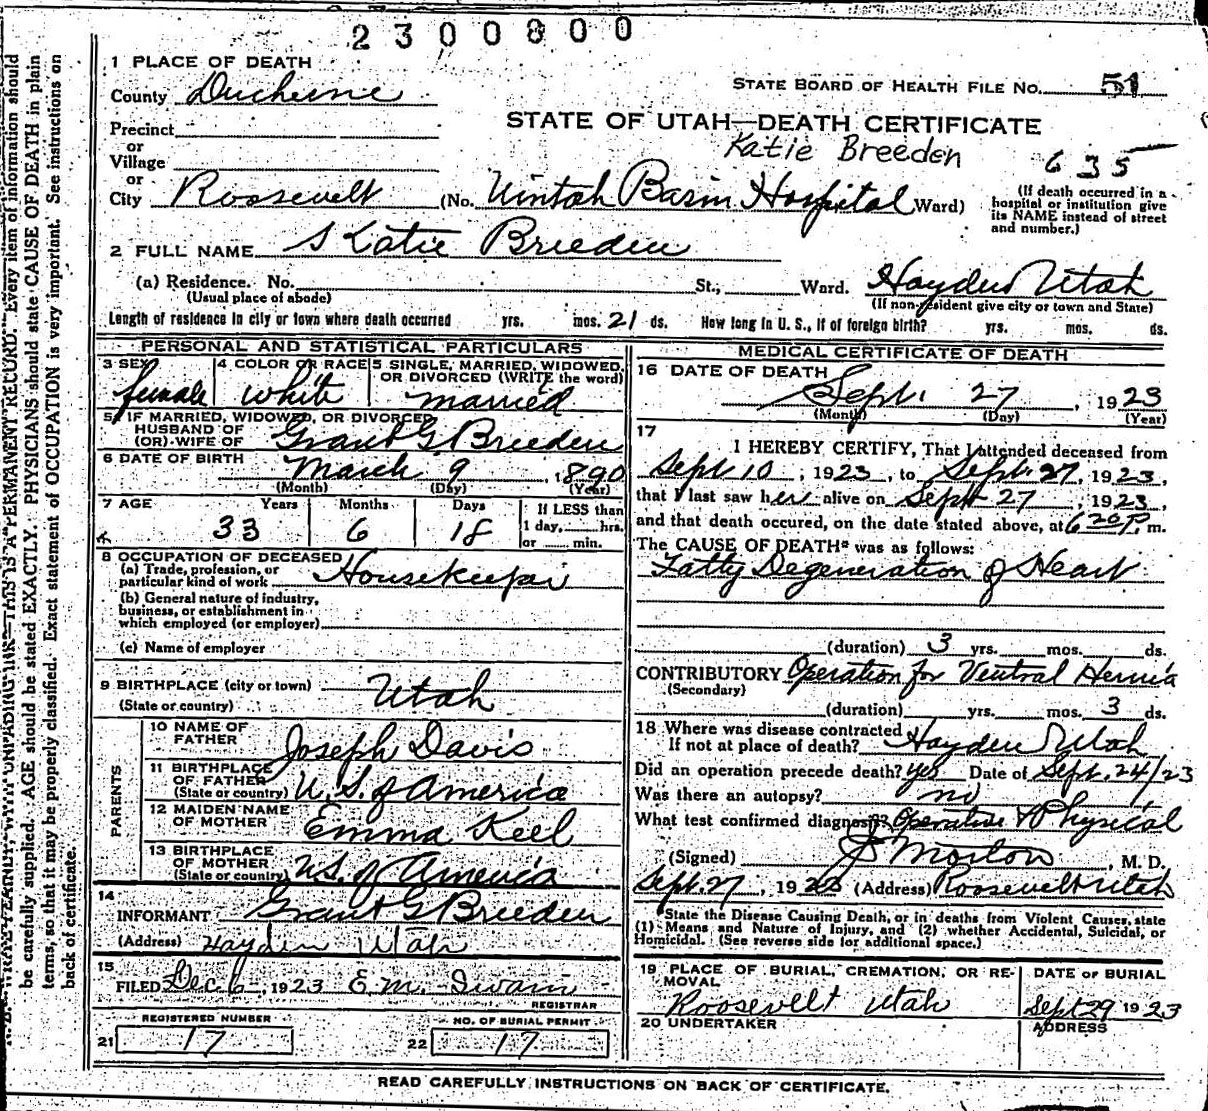 2300800
1 PLACE OF DEATH
County Duchesne
STATE BOARD OF HEALTH FILE NO. 51
Precinct
or
Village
or
STATE OF UTAH—DEATH CERTIFICATE
Katie Breeden
635
City Roosevelt (No. Uintah Basin Hospital Ward)
(If death occurred in a
hospital or institution give
its NAME instead of street
and number.)
2 FULL NAME S Katie Breeden
(a) Residence. No. St., Ward. Hayden Utah
(Usual place of abode) (If non-resident give city or town and State)
Length of residence in city or town where death occurred yrs. mos. 21 ds. How long in U. S., if of foreign birth? yrs. mos. ds.
PERSONAL AND STATISTICAL PARTICULARS
3 SEX female
4 COLOR OR RACE white
5 SINGLE, MARRIED, WIDOWED,
OR DIVORCED (WRITE the word)
married
5a IF MARRIED, WIDOWED, OR DIVORCED
HUSBAND OF
(OR) WIFE OF Grant G Breeden
6 DATE OF BIRTH March 9, 1890
(Month) (Day) (Year)
7 AGE Years Months Days If LESS than
33 6 18 1 day, hrs.
or min.
8 OCCUPATION OF DECEASED
(a) Trade, profession, or
particular kind of work Housekeeper
(b) General nature of industry,
business, or establishment in
which employed (or employer)
(c) Name of employer
9 BIRTHPLACE (city or town) Utah
(State or country)
PARENTS
10 NAME OF
FATHER Joseph Davis
11 BIRTHPLACE
OF FATHER
(State or country) U. S. of America
12 MAIDEN NAME
OF MOTHER Emma Keel
13 BIRTHPLACE
OF MOTHER
(State or country) U.S. of America
14
INFORMANT Grant G Breeden
(Address) Hayden Utah
15
FILED Dec 6, 1923 E.M. Swain
REGISTRAR
REGISTERED NUMBER
21 17
NO. OF BURIAL PERMIT
22 17
MEDICAL CERTIFICATE OF DEATH
16 DATE OF DEATH
Sept. 27, 1923
(Month) (Day) (Year)
17
I HEREBY CERTIFY, That I attended deceased from
Sept 10, 1923, to Sept. 27, 1923,
that I last saw her alive on Sept 27, 1923,
and that death occured, on the date stated above, at 6 20 P. m.
The CAUSE OF DEATH* was as follows:
Fatty Degeneration of Heart
(duration) 3 yrs. mos. ds.
CONTRIBUTORY Operation for Ventral Hernia
(Secondary)
(duration) yrs. mos. 3 ds.
18 Where was disease contracted
If not at place of death? Hayden Utah
Did an operation precede death? yes Date of Sept. 24/23
Was there an autopsy? no
What test confirmed diagnosis? Operative & Physical
(Signed) J Morton, M. D.
Sept. 27, 1923 (Address) Roosevelt Utah
*State the Disease Causing Death, or in deaths from Violent Causes, state
(1) Means and Nature of Injury, and (2) whether Accidental, Suicidal, or
Homicidal. (See reverse side for additional space.)
19 PLACE OF BURIAL, CREMATION, OR RE-
MOVAL
Roosevelt Utah
DATE OF BURIAL
Sept 29 1923
20 UNDERTAKER
ADDRESS
READ CAREFULLY INSTRUCTIONS ON BACK OF CERTIFICATE.
N. B.—WRITE PLAINLY, WITH UNFADING INK—THIS IS A PERMANENT RECORD. Every item of information should
be carefully supplied. AGE should be stated EXACTLY. PHYSICIANS should state CAUSE OF DEATH in plain
terms, so that it may be properly classified. Exact statement of OCCUPATION is very important. See instructions on
back of certificate.